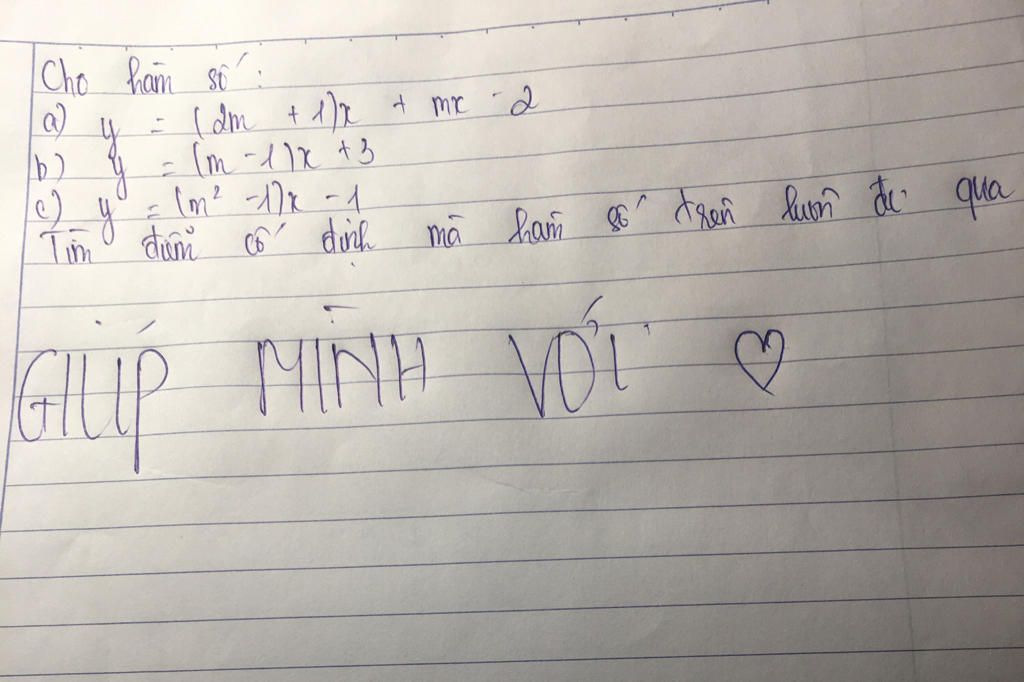 Cho hàm số :
a) y = (2m + 1)x + mx - 2
b) y = (m - 1)x + 3
c) y = (m² - 1)x - 1
Tìm điểm cố định mà hàm số trên luôn đi qua
GIÚP MÌNH VỚI ♡